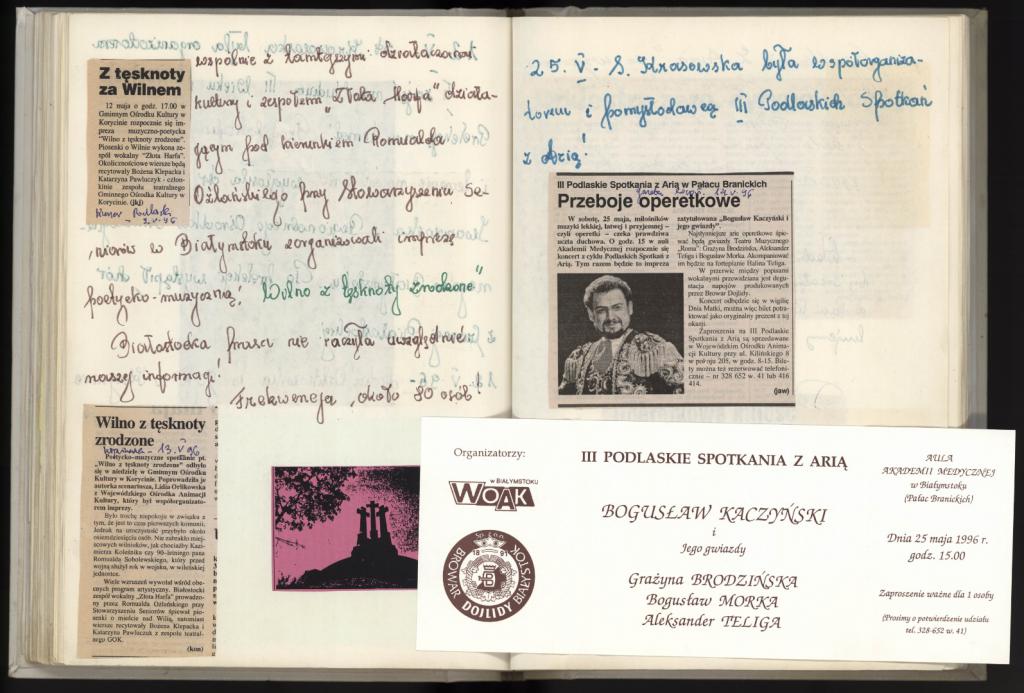 wspólnie z tamtejszymi działaczami
kultury i zespołem "Złota Harfa" działa-
jącym pod kierunkiem Romualda
Ożlańskiego przy Stowarzyszeniu Se-
niorów w Białymstoku zorganizowali imprezę
poetycko-muzyczną, "Wilno z tęsknoty zrodzone"
Białostocka prasa nie raczyła uwzględnić
naszej informacji!
Frekwencja około 80 osób!
Z tęsknoty
za Wilnem
12 maja o godz. 17.00 w
Gminnym Ośrodku Kultury w
Korycinie rozpocznie się im-
preza muzyczno-poetycka
"Wilno z tęsknoty zrodzone".
Piosenki o Wilnie wykona ze-
spół wokalny "Złota Harfa".
Okolicznościowe wiersze będą
recytowały Bożena Klepacka i
Katarzyna Pawluczyk - człon-
kinie zespołu teatralnego
Gminnego Ośrodka Kultury w
Korycinie. (jkj)
Kurier Podlaski
Wilno z tęsknoty
zrodzone
13.V 96
Poetycko-muzyczne spotkanie pt.
„Wilno z tęsknoty zrodzone" odbyło
się w niedzielę w Gminnym Ośrodku
Kultury w Korycinie. Poprowadziła je
autorka scenariusza, Lidia Orlikowska
z Wojewódzkiego Ośrodka Animacji
Kultury, który był współorganizato-
rem imprezy.
Było trochę niepokoju w związku z
tym, że jest to czas pierwszych komunii.
Jednak na uroczystość przybyło około
osiemdziesięciu osób. Nie zabrakło miej-
scowych wilniuków, jak chociażby Kazi-
mierza Koleśnika czy 90-letniego pana
Romualda Sobolewskiego, który przed
wojną służył rok w wojsku, w wileńskiej
jednostce.
Wiele wzruszeń wywołał wśród obe-
cnych program artystyczny. Białostocki
zespół wokalny "Złota Harfa" prowadzo-
ny przez Romualda Ożlańskiego przy
Stowarzyszeniu Seniorów śpiewał pio-
senki o mieście nad Wilią, natomiast
wiersze recytowały Bożena Klepacka i
Katarzyna Pawluczuk z zespołu teatral-
nego GOK.
(kon)
25. V - S. Krasowska była współorganiza-
torem i pomysłodawcą III Podlaskich Spotkań
z Arią!
III Podlaskie Spotkania z Arią w Pałacu Branickich
Przeboje operetkowe
W sobotę, 25 maja, miłośników
muzyki lekkiej, łatwej i przyjemnej –
czyli operetki – czeka prawdziwa
uczta duchowa. O godz. 15 w auli
Akademii Medycznej rozpocznie się
koncert z cyklu Podlaskich Spotkań z
Arią. Tym razem będzie to impreza
zatytułowana „Bogusław Kaczyński i
jego gwiazdy".
Najsłynniejsze arie operetkowe śpie-
wać będą gwiazdy Teatru Muzycznego
„Roma": Grażyna Brodzińska, Aleksander
Teliga i Bogusław Morka. Akompaniować
im będzie na fortepianie Halina Teliga.
W przerwie między popisami
wokalnymi przewidziana jest degu-
stacja napojów produkowanych
przez Browar Dojlidy.
Koncert odbędzie się w wigilię
Dnia Matki, można więc bilet potra-
ktować jako oryginalny prezent z tej
okazji.
Zaproszenia na III Podlaskie
Spotkania z Arią są sprzedawane
w Wojewódzkim Ośrodku Anima-
cji Kultury przy ul. Kilińskiego 8
w pokoju 205, w godz. 8-15. Bile-
ty można też rezerwować telefoni-
cznie – nr 328 652 w. 41 lub 416
414.
(jaw)
Organizatorzy:
w BIAŁYMSTOKU
WOAK
BROWAR DOJLIDY BIAŁYSTOK
III PODLASKIE SPOTKANIA Z ARIĄ
BOGUSŁAW KACZYŃSKI
i
Jego gwiazdy
Grażyna BRODZIŃSKA
Bogusław MORKA
Aleksander TELIGA
AULA
AKADEMII MEDYCZNEJ
w Białymstoku
(Pałac Branickich)
Dnia 25 maja 1996 r.
godz. 15.00
Zaproszenie ważne dla 1 osoby
(Prosimy o potwierdzenie udziału
tel. 328-652 w. 41)